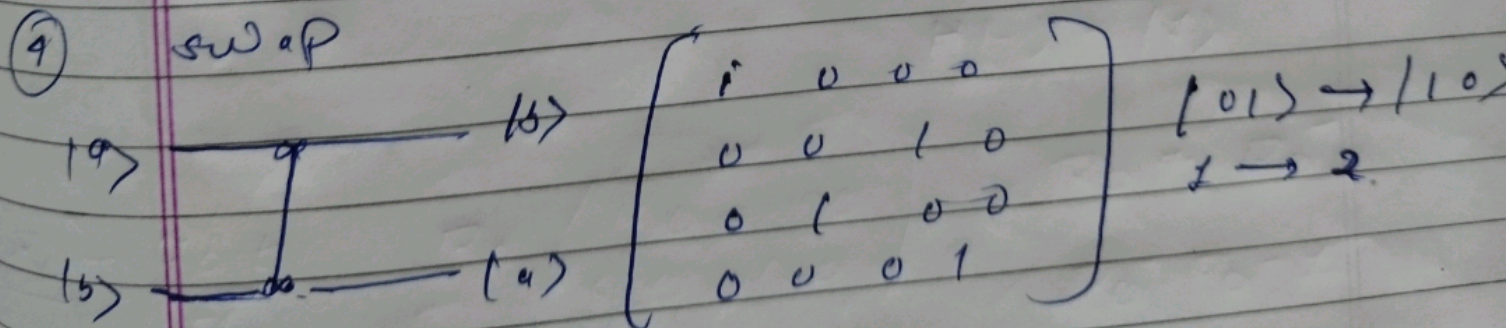 ④ swap
|a> |b>
|b> |a>
i 0 0 0
0 0 1 0
0 1 0 0
0 0 0 1
|01> → |10>
1 → 2